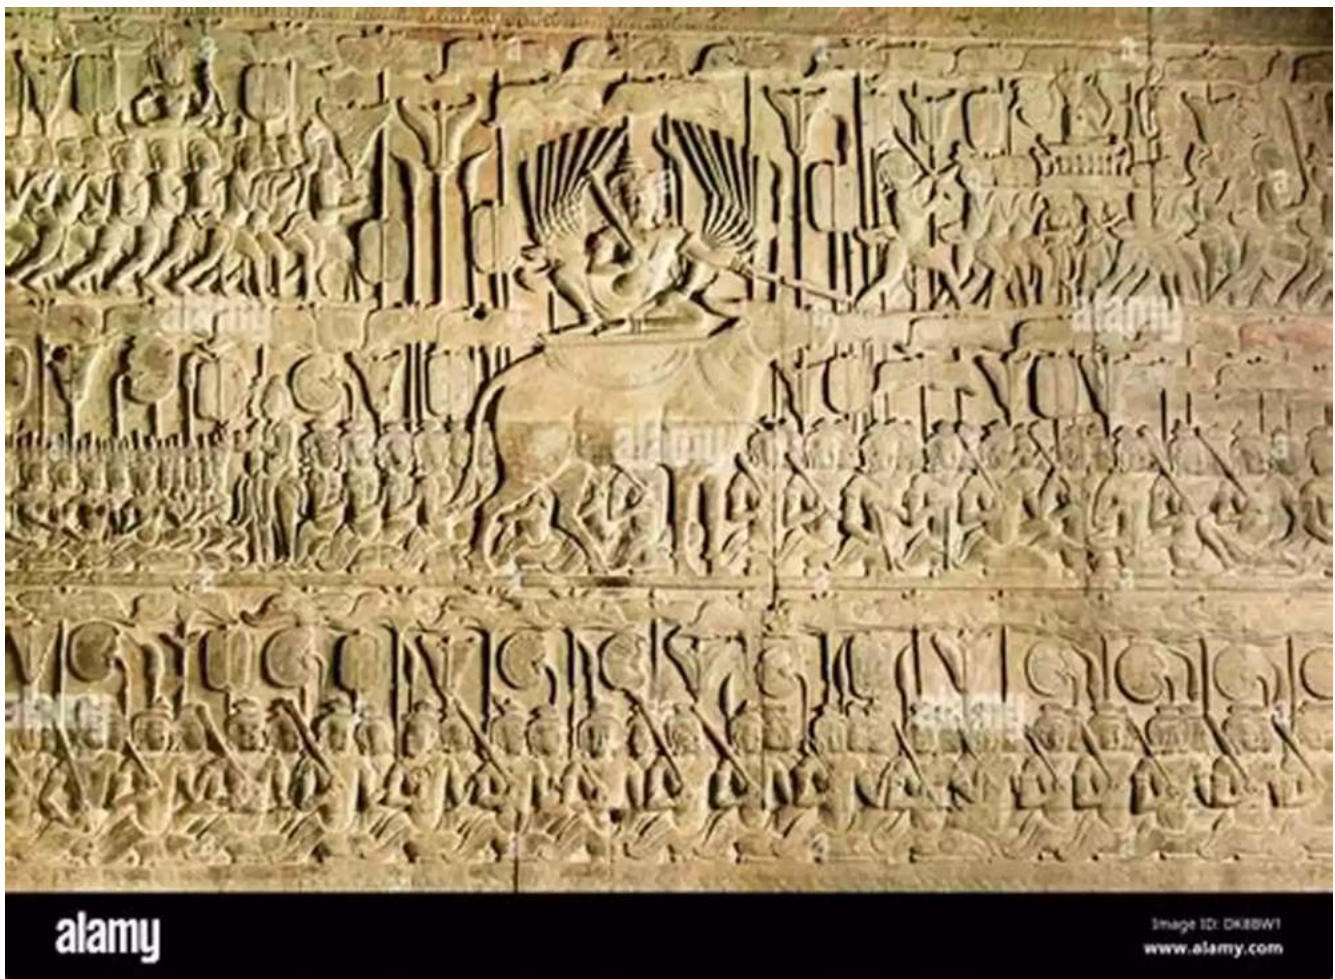 alamy
alamy
alamy
alamy
alamy
alamy
Image ID: DK8BW1
www.alamy.com